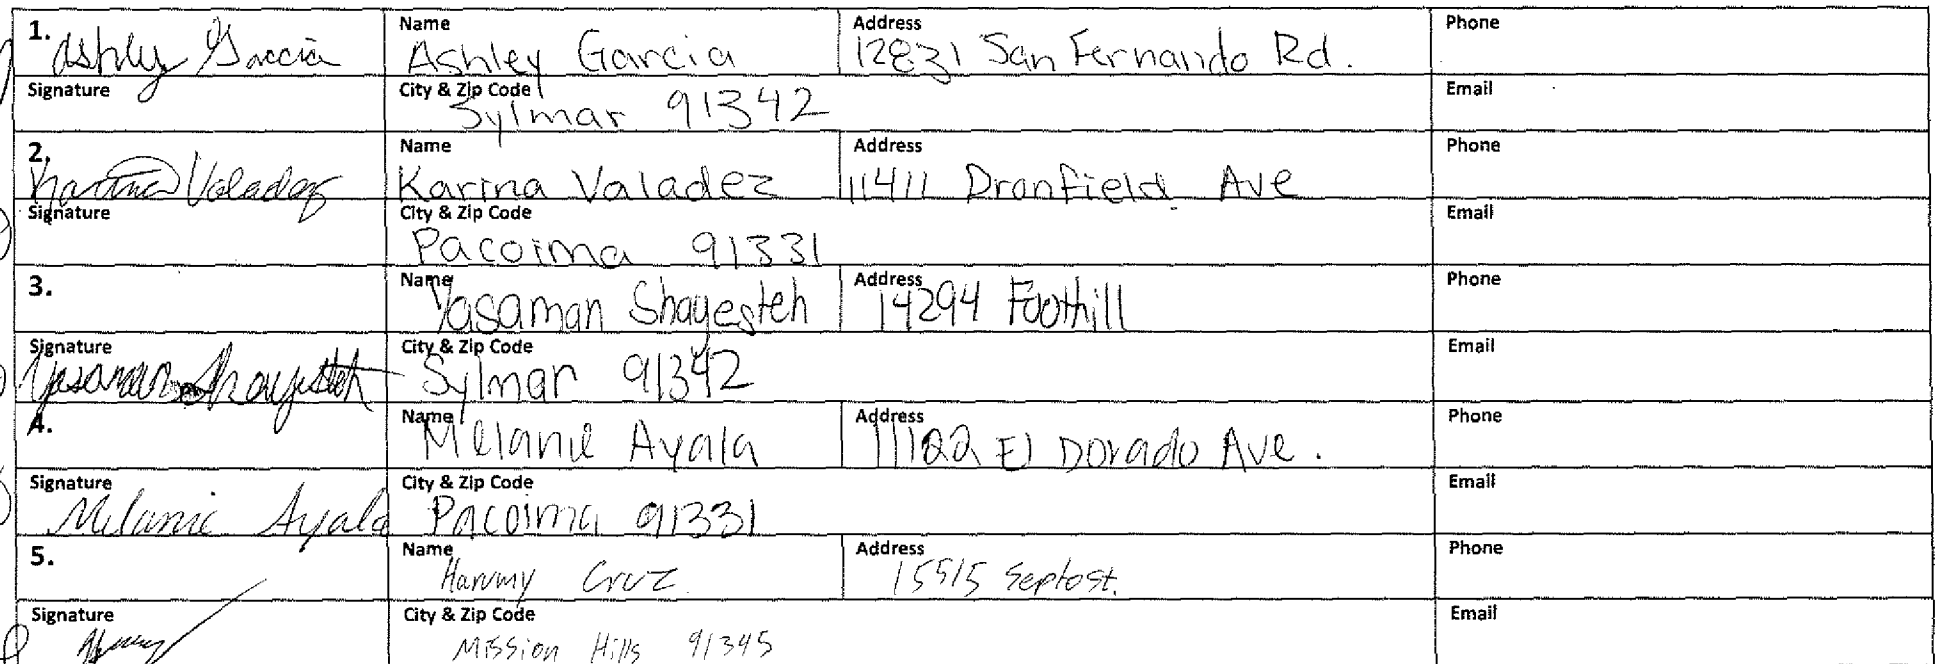 1. Ashley Garcia Name Ashley Garcia Address 12831 San Fernando Rd. Phone
Signature City & Zip Code Sylmar 91342 Email
2. Karina Valadez Name Karina Valadez Address 11411 Dronfield Ave Phone
Signature City & Zip Code Pacoima 91331 Email
3. Name Yasaman Shayesteh Address 14294 Foothill Phone
Signature Yasaman Shayesteh City & Zip Code Sylmar 91342 Email
4. Name Melanie Ayala Address 11122 El Dorado Ave. Phone
Signature Melanie Ayala City & Zip Code Pacoima 91331 Email
5. Name Cruz Address 15515 Septo st. Phone
Signature City & Zip Code Mission Hills 91345 Email